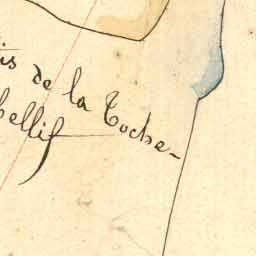 is de la Roche-
bellif